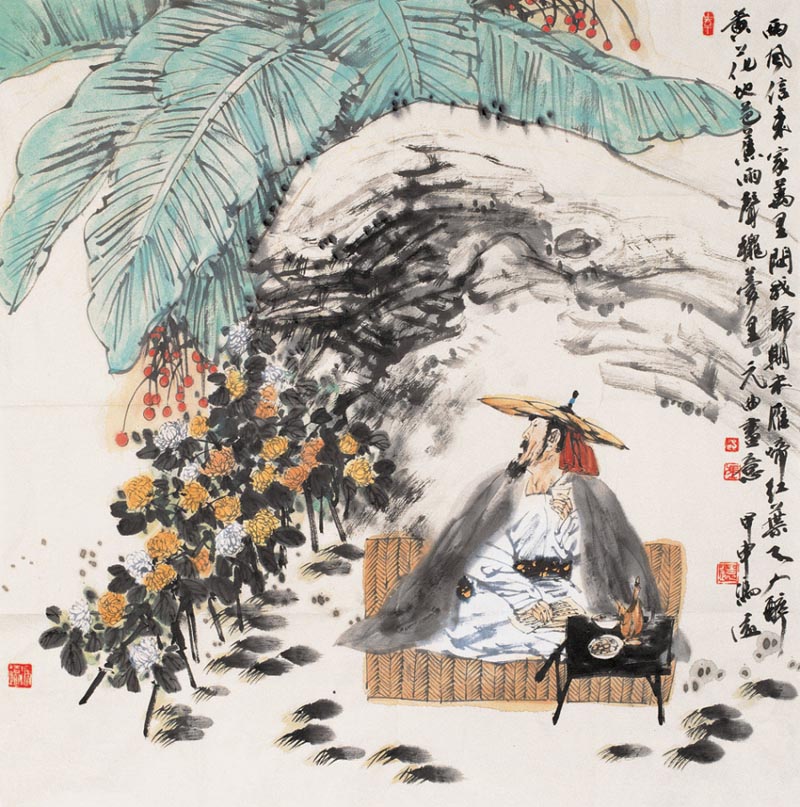 西風信来家萬里問我歸期未雁啼红葉天人醉
黄花地芭蕉雨聲龝夢里 元曲畫意 甲申馮遠